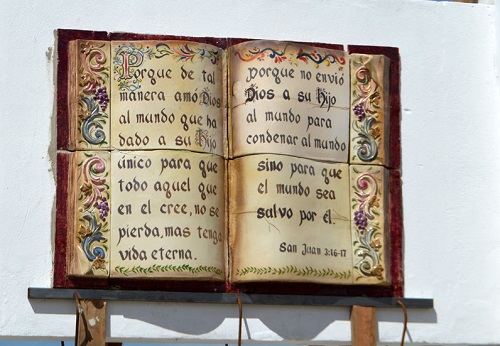 Porque de tal
manera amó Dios
al mundo que ha
dado a su Hijo
único para que
todo aquel que
en el cree, no se
pierda, mas tenga
vida eterna.
porque no envió
Dios a su Hijo
al mundo para
condenar al mundo
sino para que
el mundo sea
salvo por él.
San Juan 3:16-17